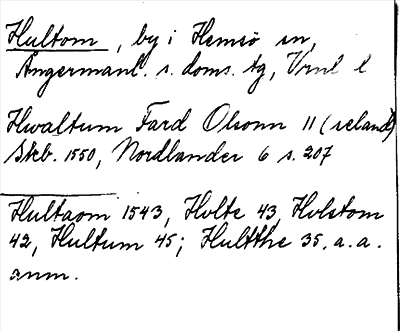 Hultom, by i Hemsö sn,
Ångermanl. s. doms. tg, Vrnl l
Hwaltum Fard Olsonn 11 (seland)
Skb. 1550, Nordlander 6 s. 207
Hultaom 1543, Holte 43, Holstom
42, Hultum 45; Hultthe 35. a. a.
anm.